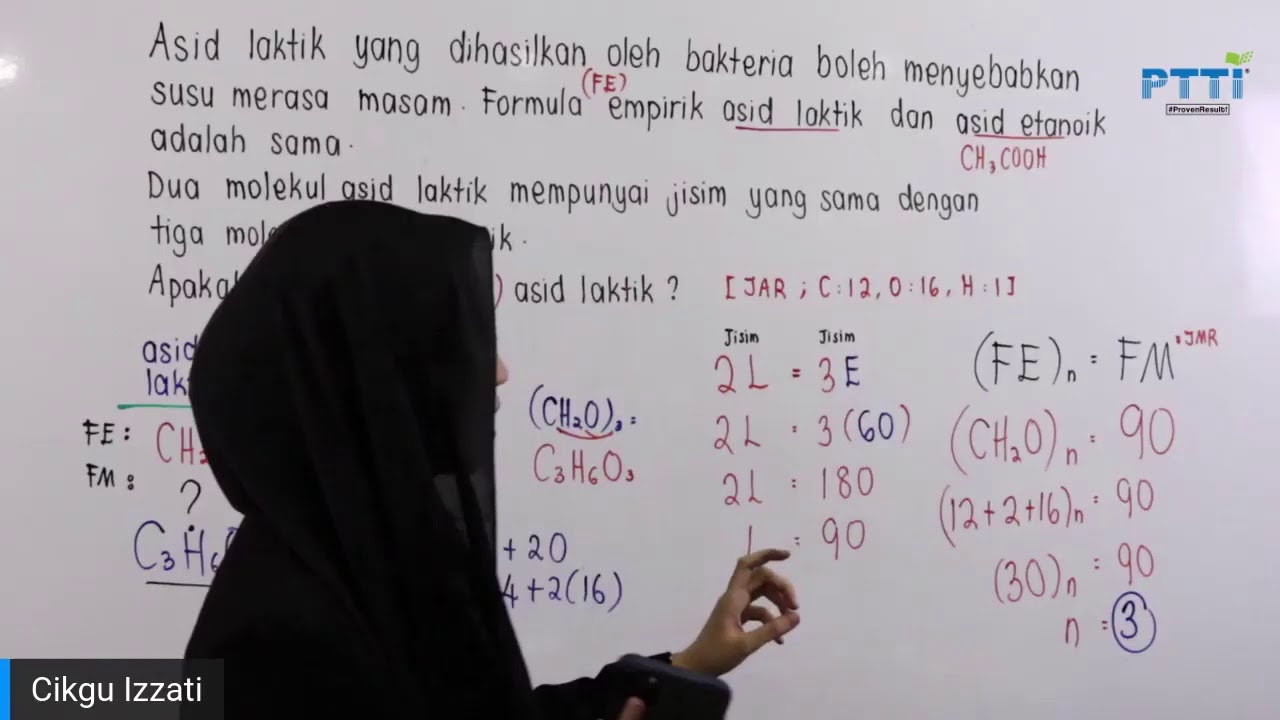 Asid laktik yang dihasilkan oleh bakteria boleh menyebabkan
(FE)
susu merasa masam. Formula empirik asid laktik dan asid etanoik
adalah sama.
CH₃COOH
Dua molekul asid laktik mempunyai jisim yang sama dengan
tiga
asid laktik ? [JAR ; C:12, O:16, H:1]
asid
FE:
FM: ?
(CH₂O)₃ =
C₃H₆O₃
+ 20
4+2(16)
Jisim Jisim
2L = 3E
2L = 3(60)
2L = 180
= 90
(FE)n = FM =JMR
(CH₂O)n = 90
(12+2+16)n = 90
(30)n = 90
n = 3
PTTI
#ProvenResult!
Cikgu Izzati